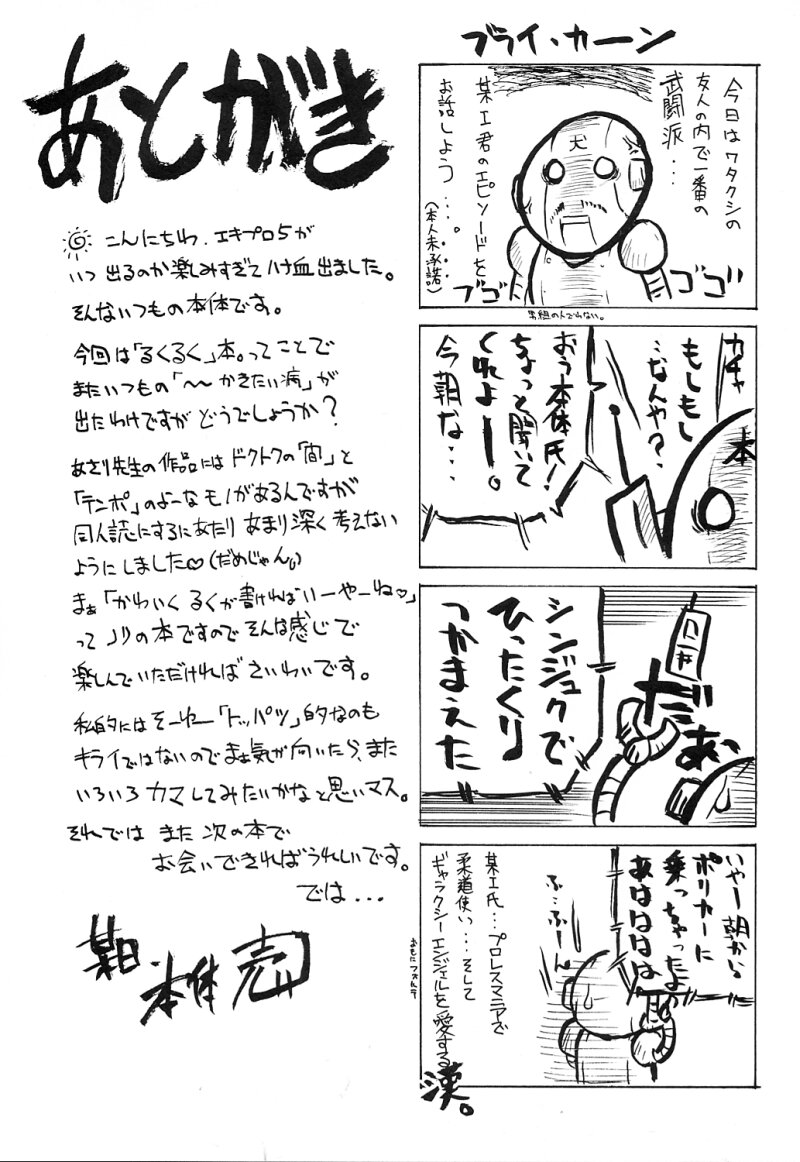 あとがき
こんにちわ、エキプロ5が
いつ出るのか楽しみすぎてハナ血出ました。
そんないつもの本体です。
今回は「るくるく」本。ってことで
またいつもの「〜〜かきたい病」が
出たわけですがどうでしょうか?
あさり先生の作品にはドクトクの「間」と
「テンポ」のよーなモノがあるんですが
同人誌にするにあたりあまり深く考えない
ようにしました♡(だめじゃん)
まぁ「かわいくるくが書ければいーやーね♡」
ってノリの本ですのでそんな感じで
楽しんでいただければさいわいです。
私的にはそーゆー「トッパツ」的なのも
キライではないのでまぁ気が向いたら、また
いろいろカマしてみたいかなと思いマス。
それでは また 次の本で
お会いできればうれしいです。
では...
某日
本体 売
ブライ・カーン
今日はワタクシの
友人の内で一番の
武闘派...
某エ君のエピソードを
お話しよう...。
(本人未承諾)
犬
ゴゴ
ブゴ
男組の人でわない。
ガチャ
もしもし
..なんや?
おう本体氏!
ちょっと聞いて
くれよー。
今朝な...
本
シンジュクで
ひったくり
つかまえた
だあ
いやー朝から
ポリカーに
乗っちゃったよ
あはははは
ふ...ふーん
某エ氏...プロレスマニアで
柔道使い...そして
ギャラクシーエンジェルを愛する
漢。
おもにフォルテ